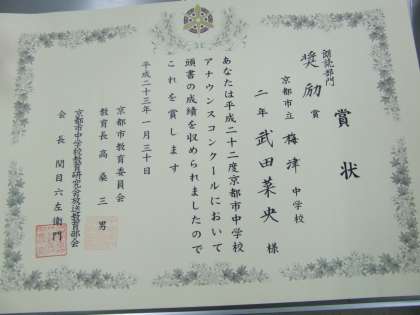 賞状
朗読部門
奨励賞
京都市立 梅津 中学校
二年 武田菜央 様
あなたは平成二十二度京都市中学校
アナウンスコンクールにおいて
頭書の成績を収められましたので
これを賞します
平成二十三年一月三十日
京都市教育委員会
教育長 高桑三男
京都市中学校教育研究会放送教育部会
会長 関目六左衛門